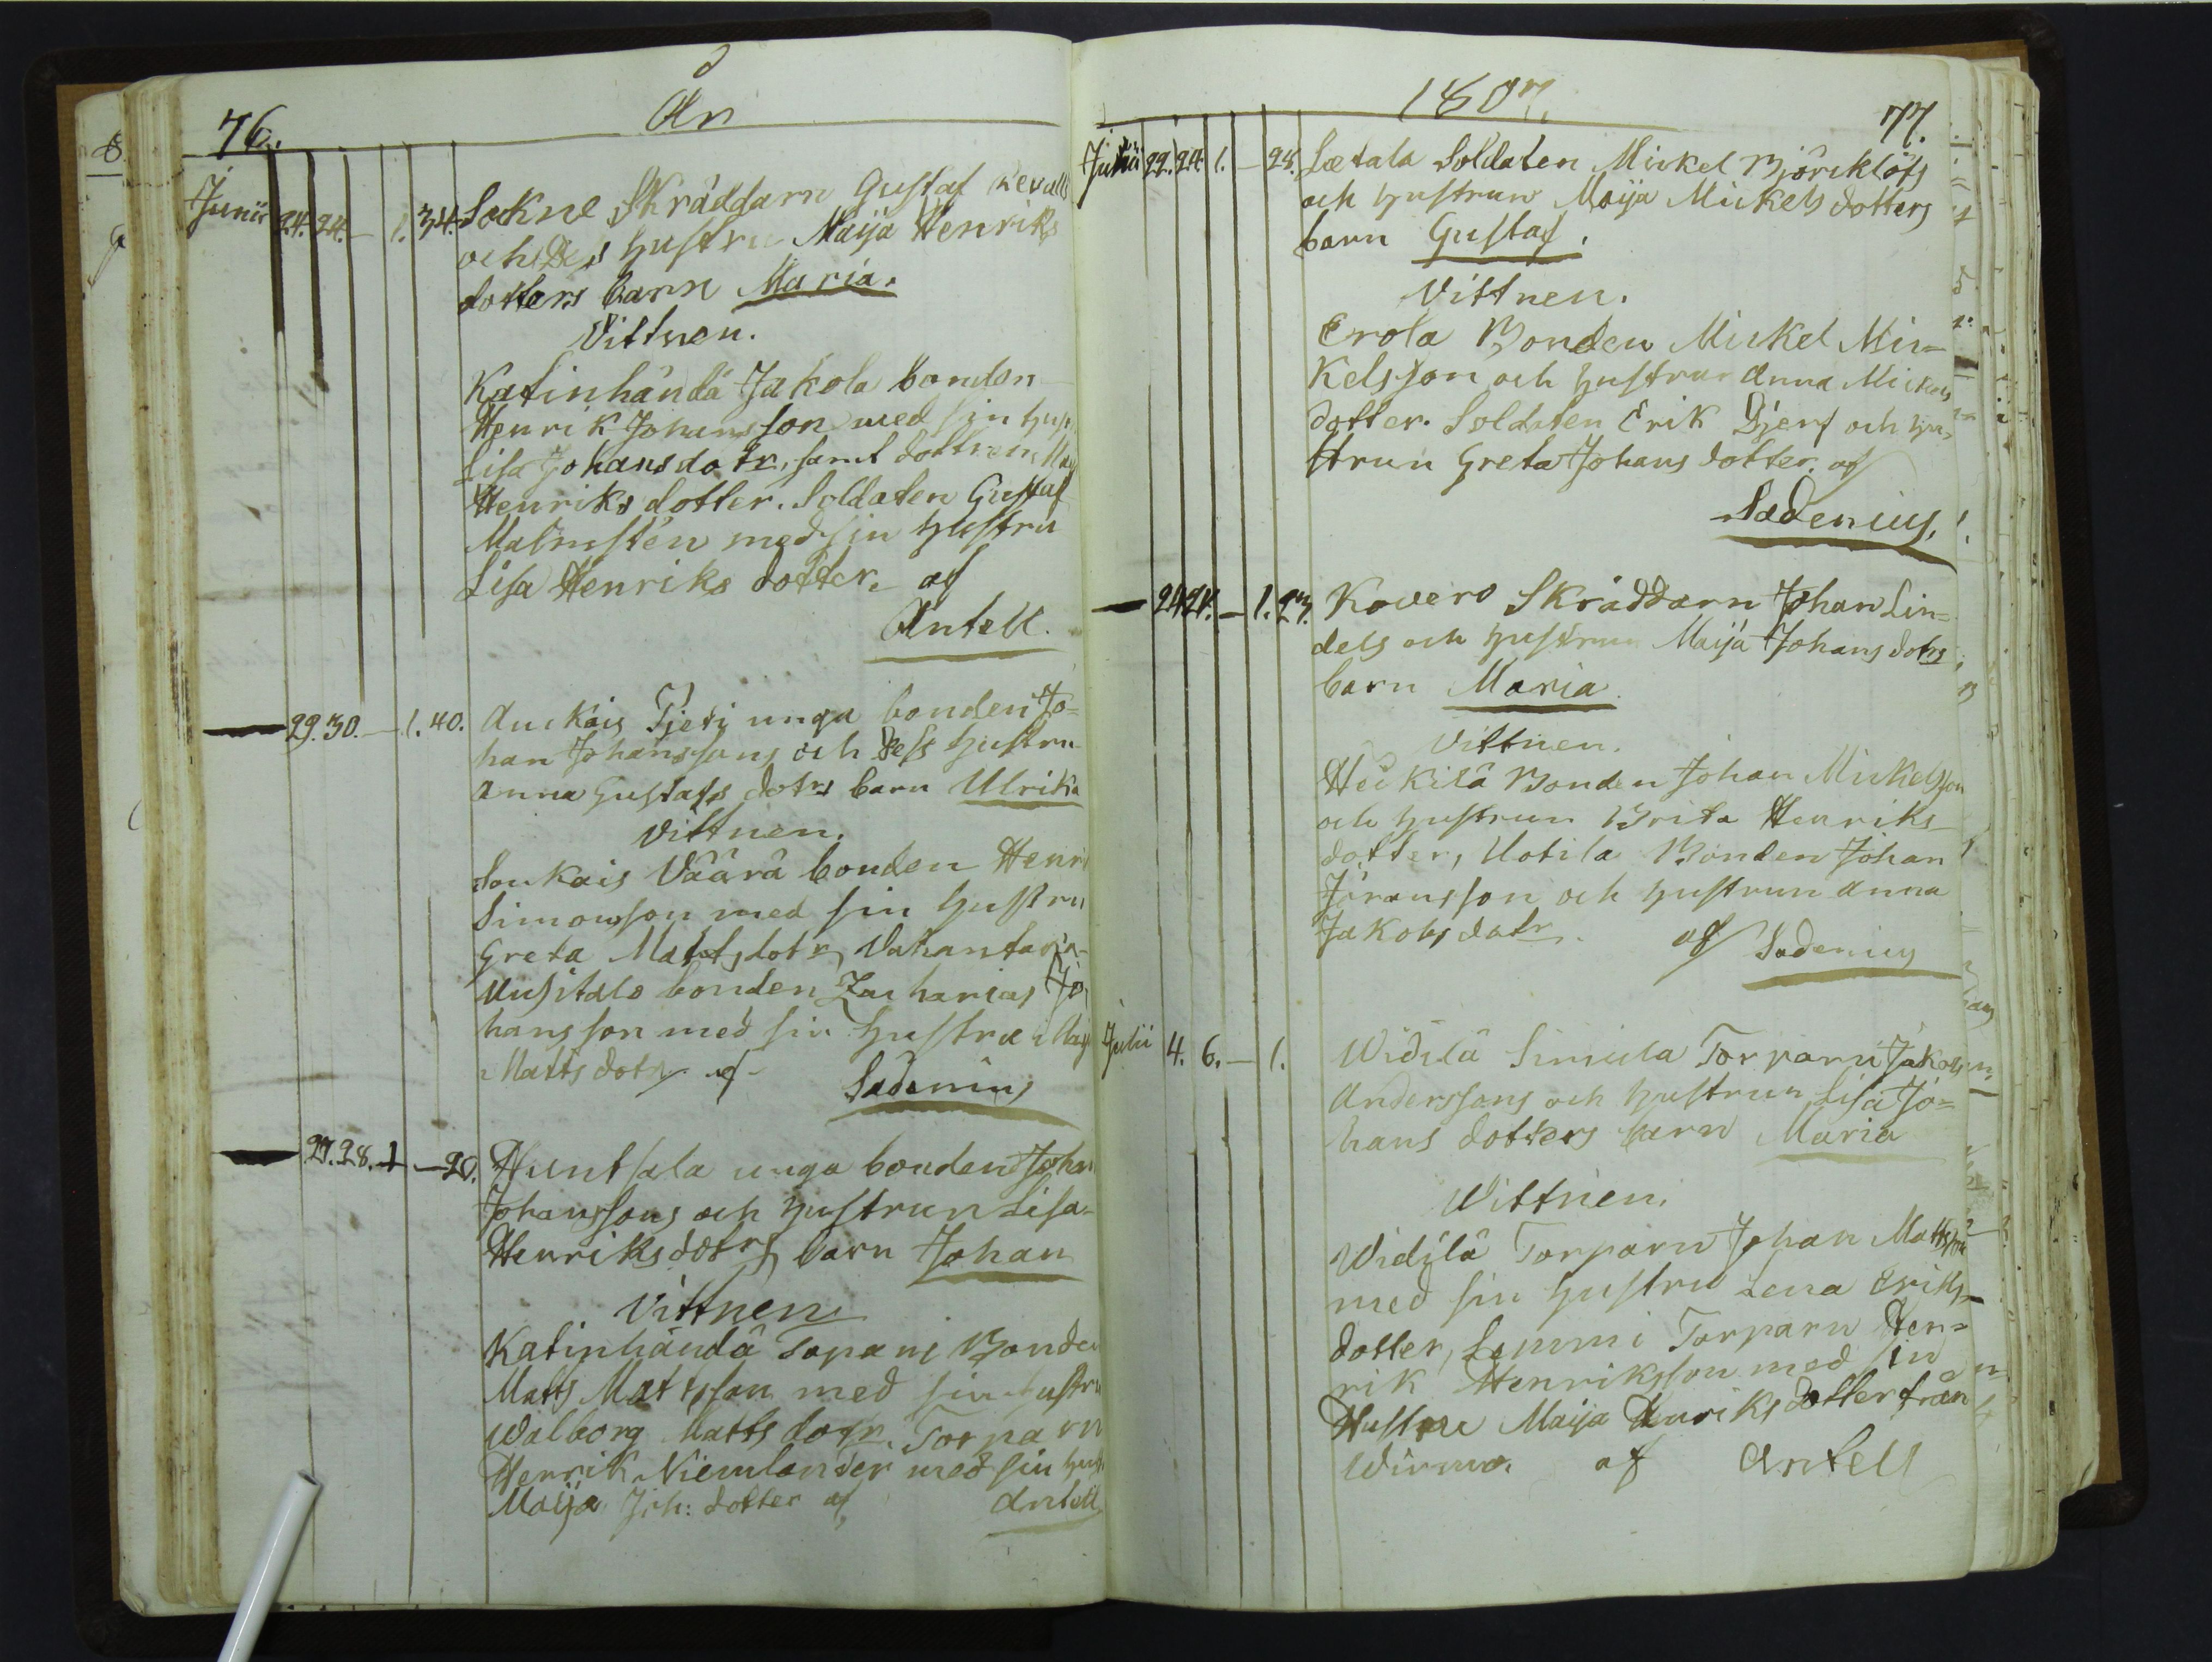 76. År
Junii 24. 24. — 1. 34. Sockne Skräddarn Gustaf
och Dess hustru Maija Henriks
dotters barn Maria.
Vittnen.
Katinhändä Jakola bonden
Henrik Johansson med sin hus
Lisa Johansdotr, samt dottren Maj
Henriksdotter. Soldaten Gustaf
Malmstén med sin hustru
Lisa Henriks dotter. af
Antell.
— 29. 30. — 1. 40. Auckais Pjeti unga bonden Jo=
han Johanssons och Dess hustru
Anna Gustafs dotrs barn Ulrika
Vittnen.
Soukais Väärä bonden Henri
Simonson med sin hustru
Greta Matts dotr, Vahantaria
Uusitalo bonden Zacharias Jo
hansson med sin hustru Maj
Matts dotr af
Sadenius
— 27. 28. 1 — 20. Huntsala unga bonden Johan
Johanssons och hustrun Lisa
Henriksdotrs barn Johan
Vittnen
Katinhändä Tapani Bonden
Matts Mattsson med sin hustru
Walborg Matts dotr. Torparn
Henrik Niemlander med sin hust
Maija Joh: dotter af Antell
1807. 77.
Junii 22. 24. 1. — 28. Lætala Soldaten Mickel Björklöfs
och hustrun Maija Mickels dotters
barn Gustaf.
Vittnen.
Erola Bonden Mickel Mic=
kelsson och hustrun Anna Mickels
dotter. Soldaten Erik Djerf och hu=
strun Greta Johans dotter. af
Sadenius.
— 24. 24. — 1. 27. Kovero Skräddarn Johan Lin=
dels och hustrun Maija Johans dotrs
barn Maria
Vittnen.
Heickilä Bonden Johan Mickelsson
och hustrun Brita Henriks
dotter, Uotila Bonden Johan
Jöransson och hustrun Anna
Jakobs dotr. af Sadenius
Julii 4. 6. — 1. Widilä Simula Torparn Jakob
Anderssons och hustrun Lisa Jo=
hans dotters barn Maria
Vittnen.
Widilä Torparn Johan Mattsson
med sin hustru Lena Eriks
dotter, Lemmi Torparn Hen=
rik Henriksson med sin
Hustru Maija Henriks dotter från
Wirmo. af Antell